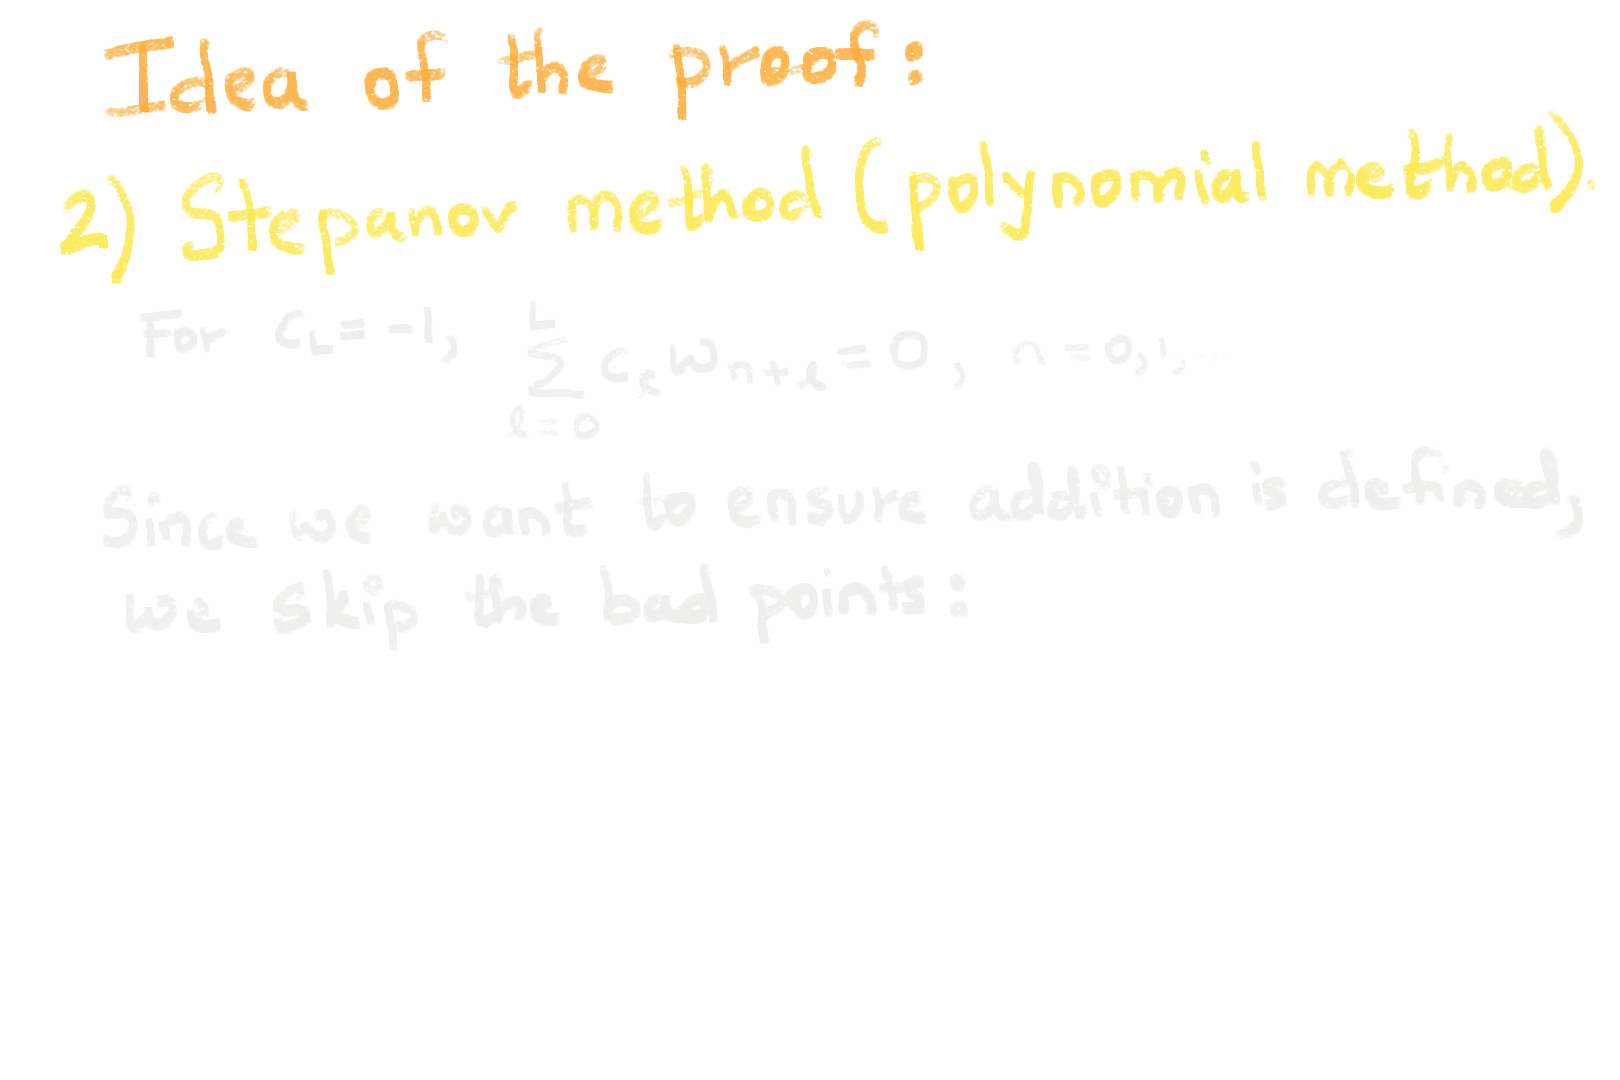 Idea of the proof:
2) Stepanov method (polynomial method).
For c_L = -1, \sum_{l=0}^{L} c_l w_{n+l} = 0, n = 0, 1, ...
Since we want to ensure addition is defined,
we skip the bad points: